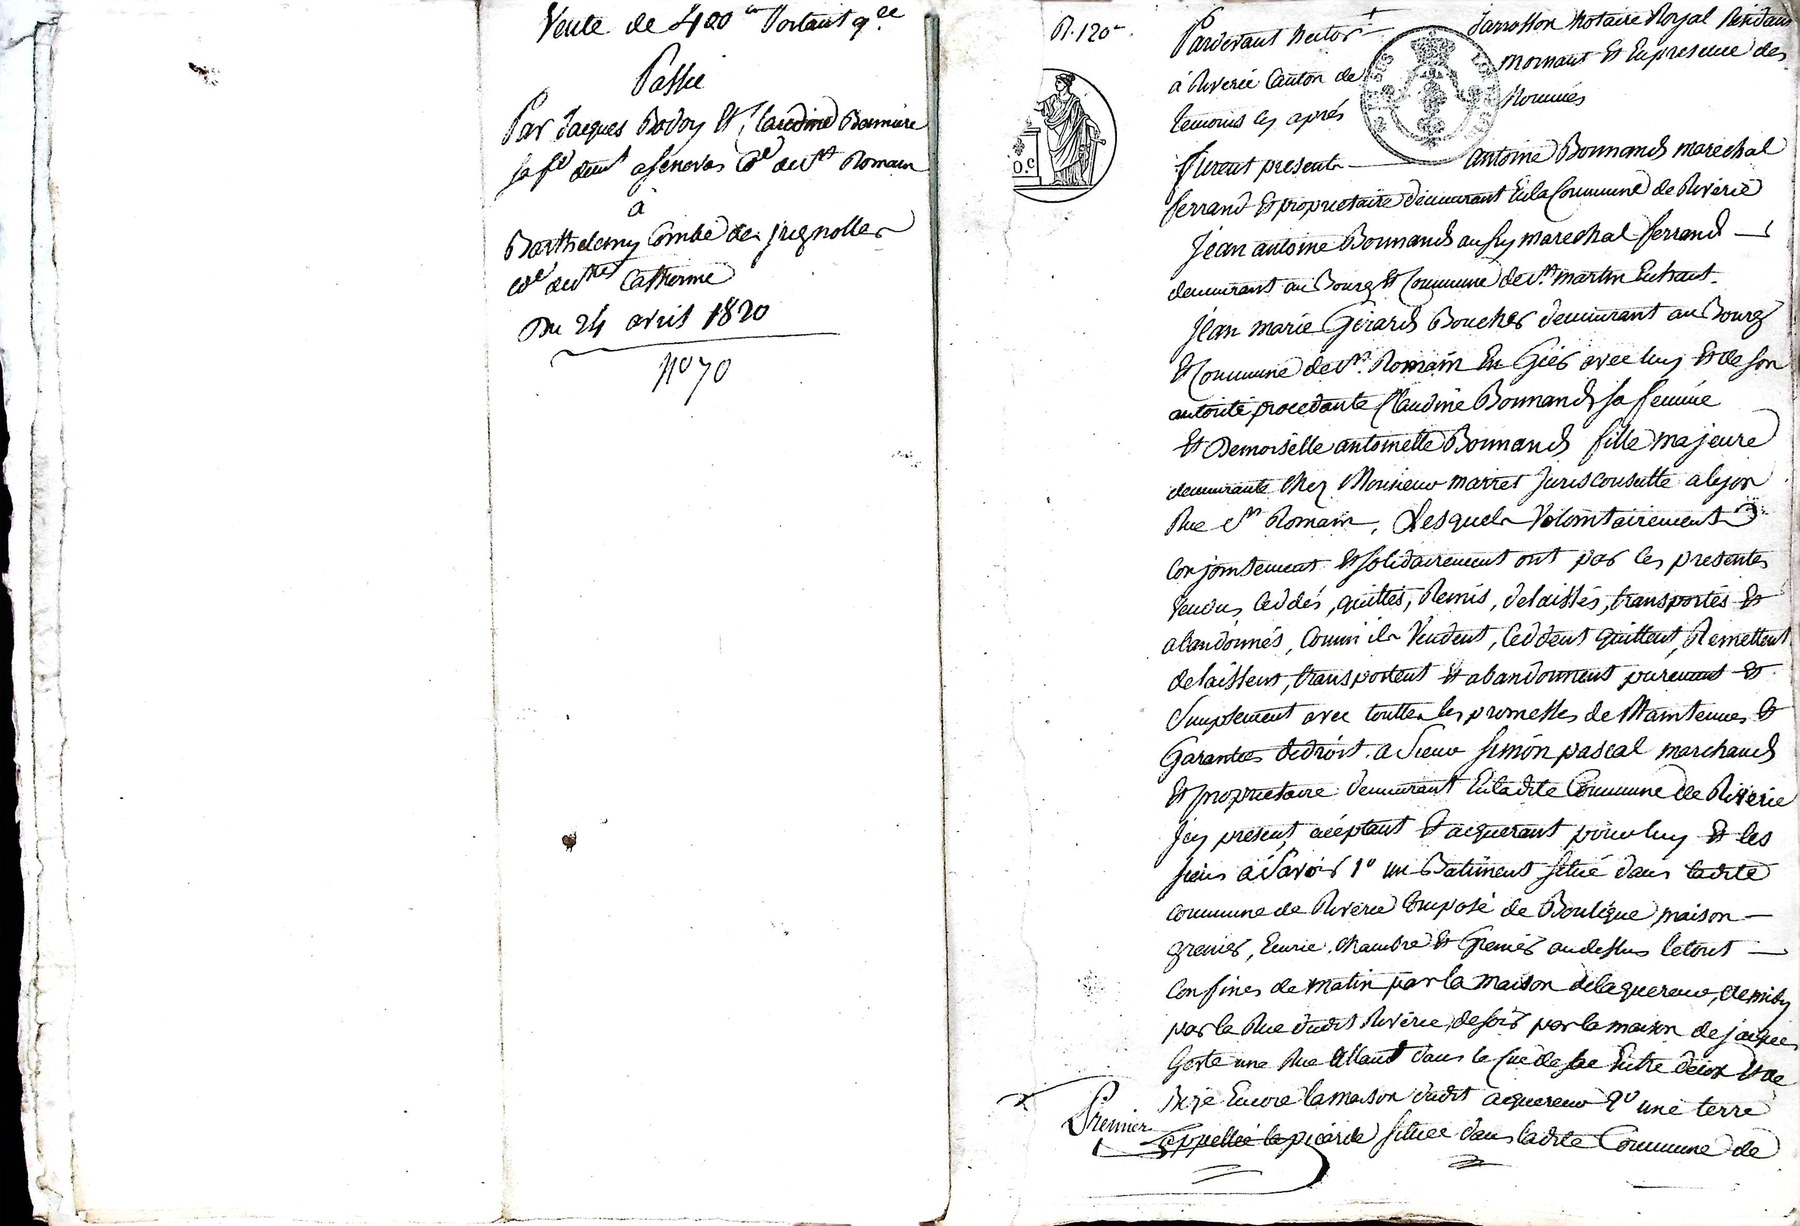 Vente de 400 fr Portant q.ce
Passée
Par Jacques Bodoy Et Claudine Bernière
sa fe demt a senevas Cne de St Romain
à
Barthelemy Combe de jrignolles
cne de Ste Catherine
Du 24 avril 1820
N° 70
R. 120
Pardevant hector Jarrosson Notaire Royal Résidant
à Riverie Canton de Mornant Et En presence des
temoins cy aprés Nommés
furent presents antoine Bonnand marechal
ferrand Et proprietaire demeurant En la Commune de Riverie
Jean antoine Bonnand aussy marechal ferrand
demeurant au Bourg Et Commune de St. martin En haut.
Jean marie Girard Boucher demeurant au Bourg
Et Commune de St. Romain En Gier avec luy Et de son
autorité procedante Claudine Bonnand sa femme
Et Demoiselle antoinette Bonnand fille majeure
demeurante chez Monsieur marret Jurisconsulte a lyon
Rue St Romain. Lesquels Volontairement
Conjointement Et solidairement ont par ces presentes
Vendus, Ceddés, quittés, Remis, delaissés, transportés Et
abandonnés, Comm'ils Vendent, Ceddent quittent, Remettent
delaissent, transportent Et abandonnent purement Et
Simplement avec touttes les promesses de Maintenues Et
Garanties de droit. a Sieur Simon pascal marchand
Et proprietaire demeurant En ladite Commune de Riverie
Jcy present, acéptant Et acquerant pour luy Et les
siens à Savoir 1° un Batiment situé dans ladite
commune de Riverie Composé de Boutique, maison
grenier, Ecurie, chambre Et Grenier au dessus le tout
Confines de matin par la maison de laquereur, de midy
par la Rue dudit Riverie, de soir par la maison de jacques
Goste une Rue Allant dans le Cue de sac Entre deux Et de
Bize Encore la maison dudit acquereur 2° une terre
appellée la picarde située dans ladite Commune de
Premier